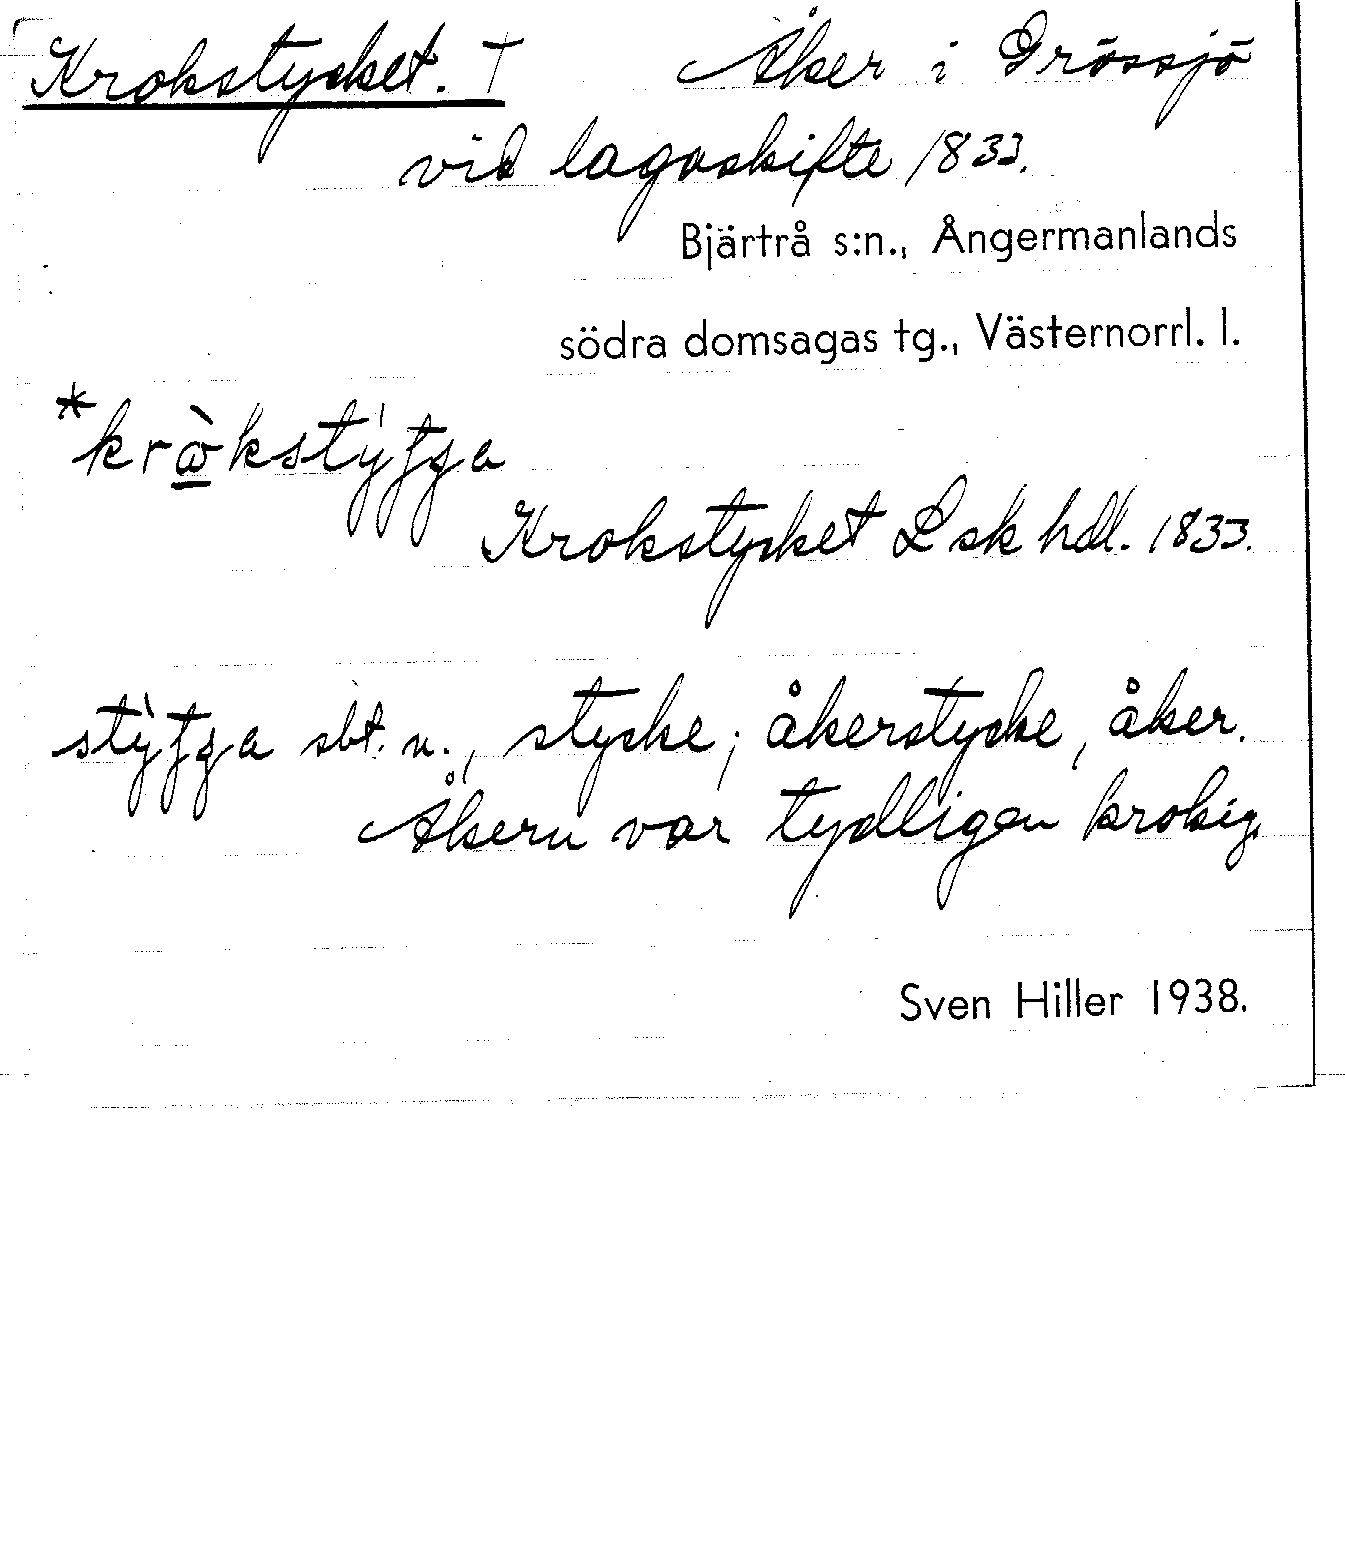 Krokstycket. † Åker i Grössjö
vid lagaskifte 1833.
Bjärtrå s:n., Ångermanlands
södra domsagas tg., Västernorrl. l.
Krokstycket L sk hdl. 1833.
sbt. n., stycke; åkerstycke, åker.
Åkern var tydligen krokig.
Sven Hiller 1938.